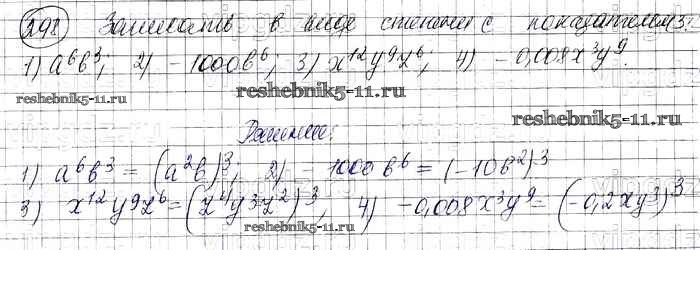 298 Записать в виде степени с показателем 3:
1) a⁶b³; 2) - 1000b⁶; 3) x¹²y⁹z⁶; 4) - 0,008x³y⁹.
reshebnik5-11.ru reshebnik5-11.ru reshebnik5-11.ru
Решение:
1) a⁶b³ = (a²b)³; 2) - 1000b⁶ = (-10b²)³
3) x¹²y⁹z⁶ = (z⁴y³z²)³, 4) -0,008x³y⁹ = (-0,2xy³)³
reshebnik5-11.ru